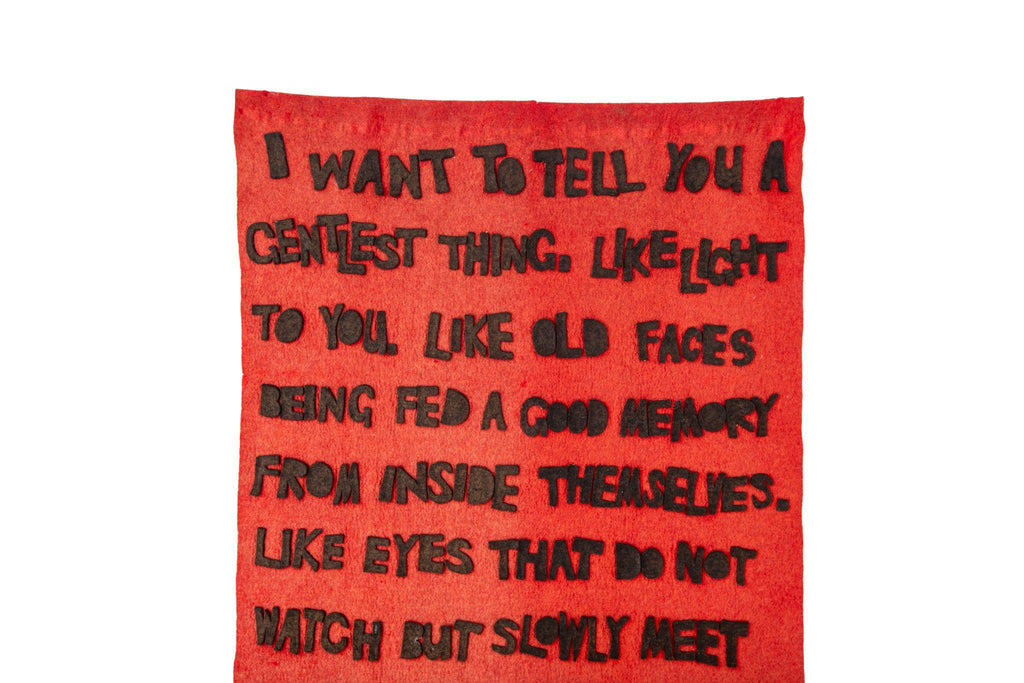 I WANT TO TELL YOU A
GENTLEST THING. LIKE LIGHT
TO YOU. LIKE OLD FACES
BEING FED A GOOD MEMORY
FROM INSIDE THEMSELVES.
LIKE EYES THAT DO NOT
WATCH BUT SLOWLY MEET